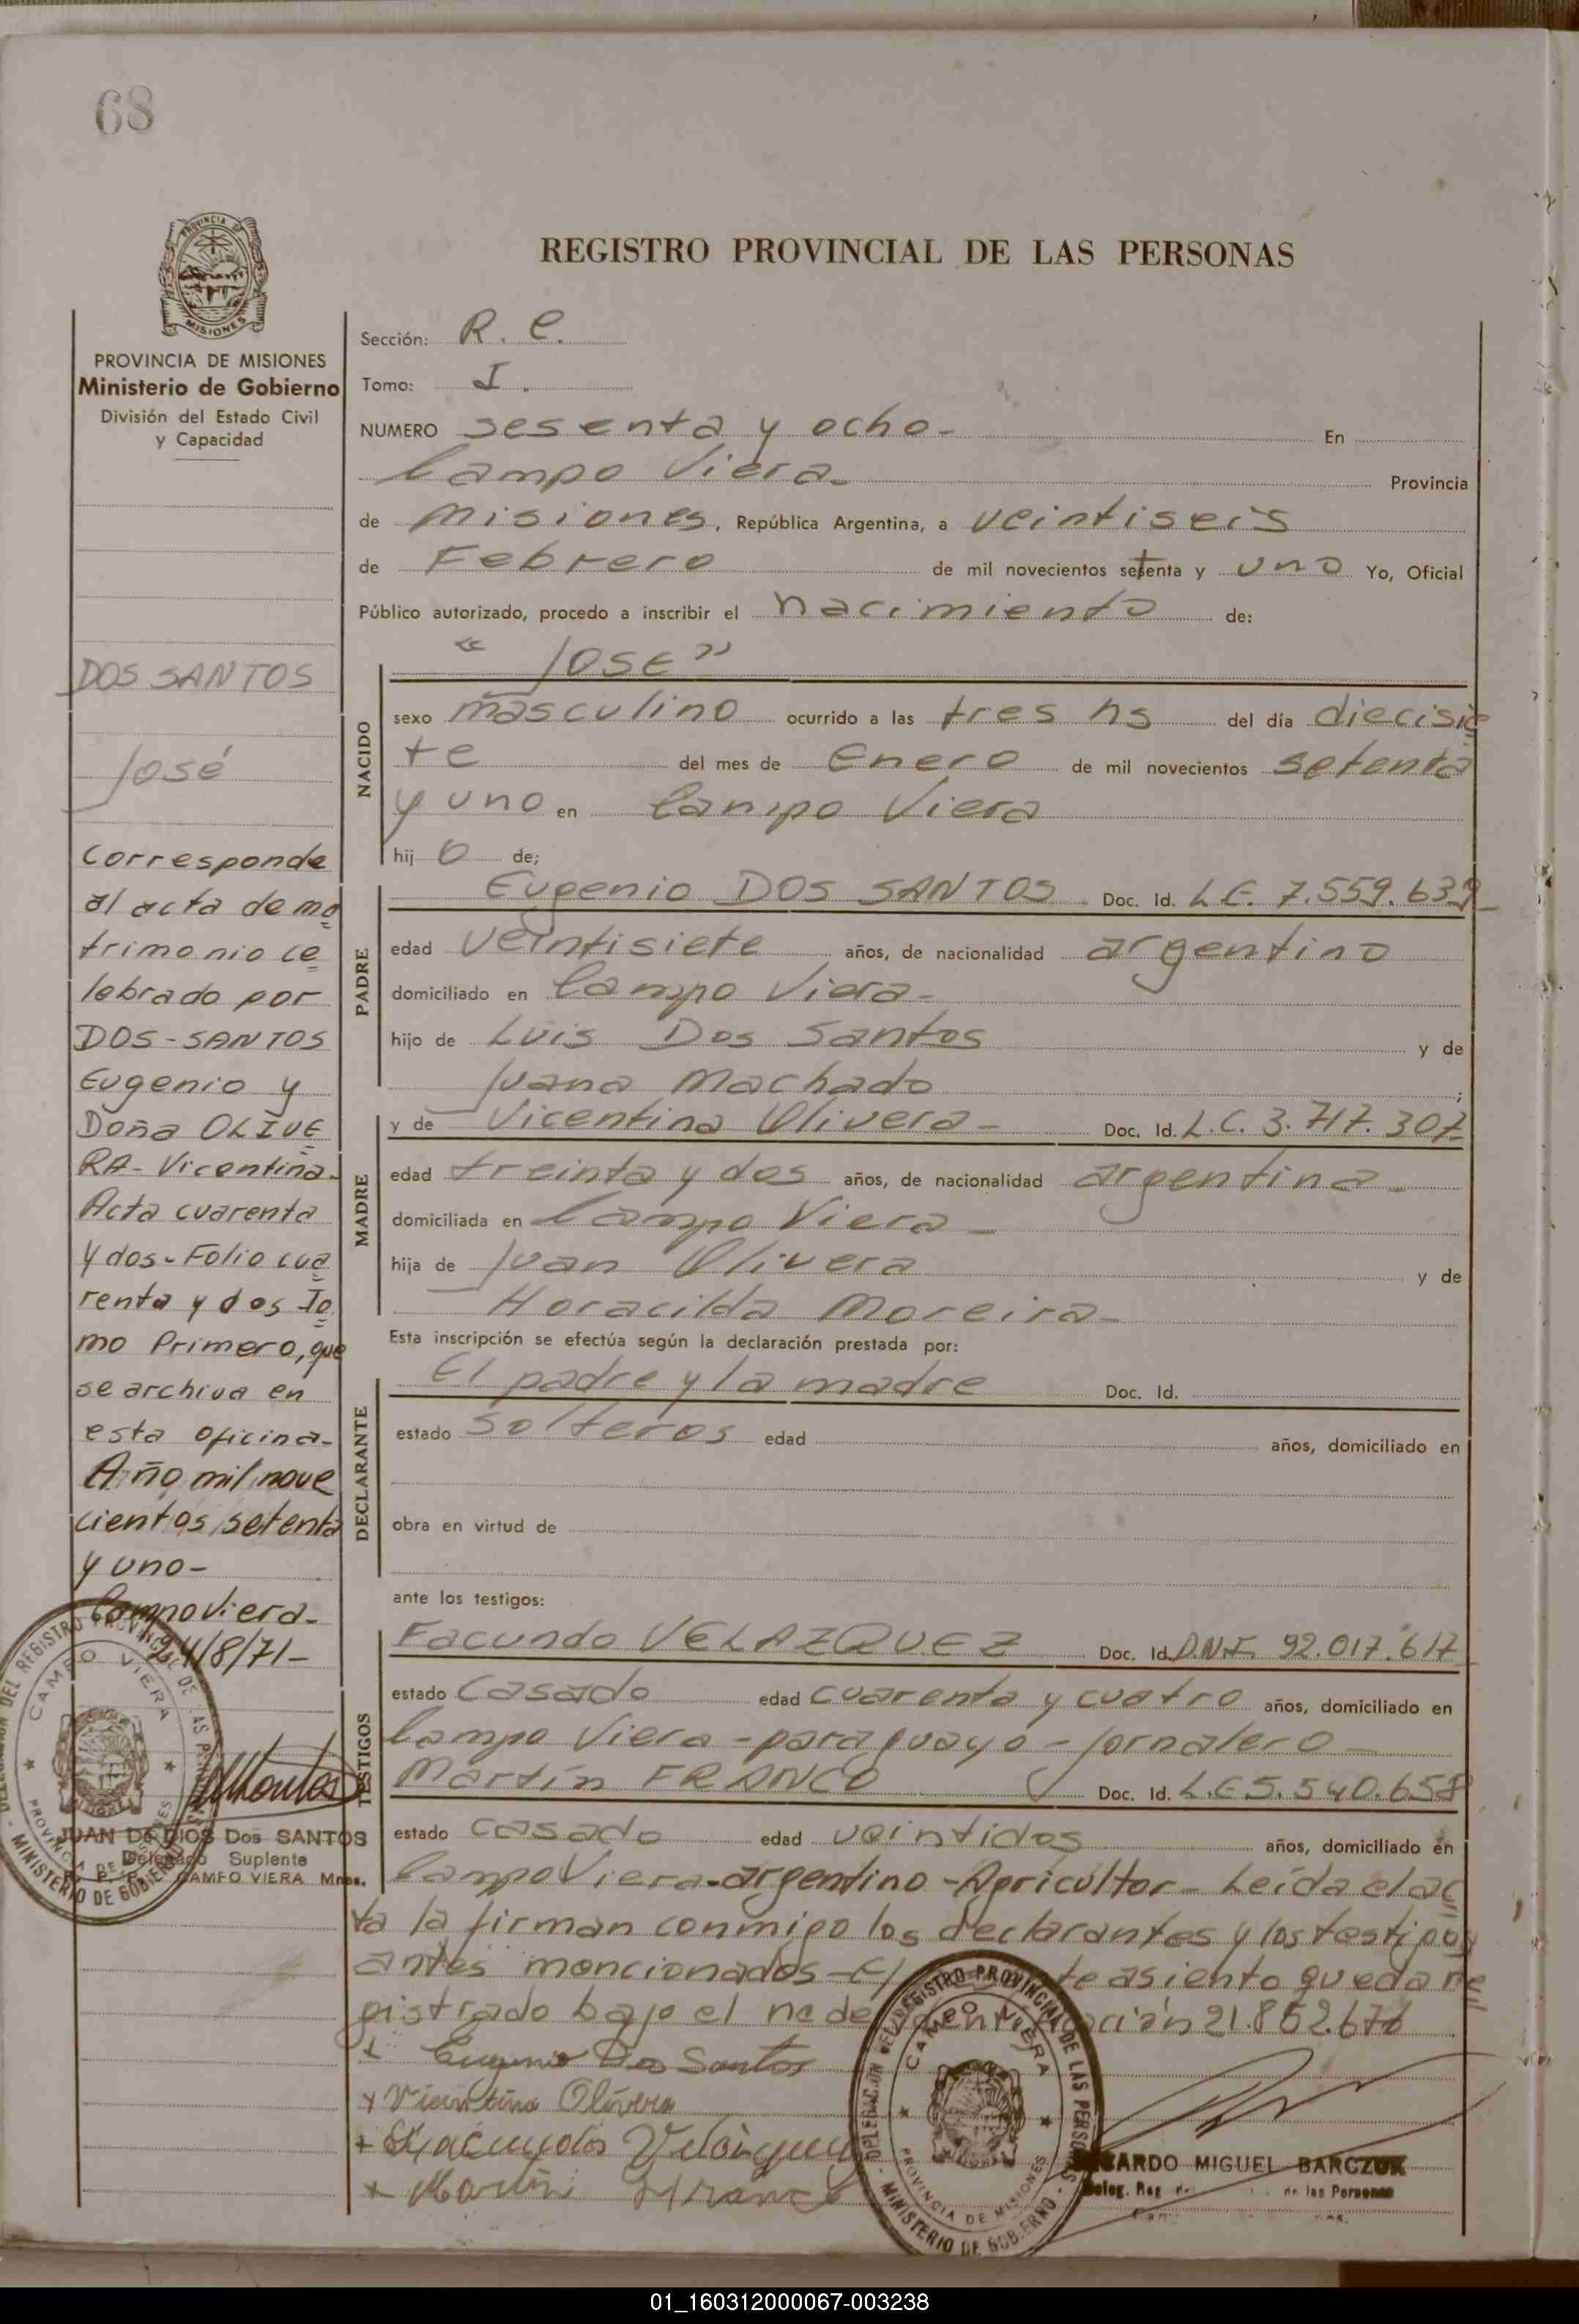 68
REGISTRO PROVINCIAL DE LAS PERSONAS
PROVINCIA DE MISIONES
Ministerio de Gobierno
División del Estado Civil
y Capacidad
DOS SANTOS
José
Corresponde
al acta de ma
trimonio ce
lebrado por
DOS-SANTOS
Eugenio y
Doña OLIVE
RA- Vicentina-
Acta cuarenta
y dos-Folio cua
renta y dos To
mo Primero, que
se archiva en
esta oficina-
Año mil nove
cientos setenta
y uno-
Campo Viera-
24/8/71-
JUAN De DIOS Dos SANTOS
Delegado Suplente
CAMPO VIERA Mnes.
Sección: R. C.
Tomo: I.
NUMERO sesenta y ocho- En
Campo Viera- Provincia
de Misiones, República Argentina, a veintiseis
de Febrero de mil novecientos setenta y uno Yo, Oficial
Público autorizado, procedo a inscribir el nacimiento de:
"JOSE"
NACIDO
sexo masculino ocurrido a las tres hs del día diecisie
te del mes de Enero de mil novecientos setenta
y uno en Campo Viera
hij o de;
PADRE
Eugenio DOS SANTOS Doc. Id. L.E. 7.559.639-
edad veintisiete años, de nacionalidad argentino
domiciliado en Campo Viera-
hijo de Luis Dos Santos y de
Juana Machado ;
MADRE
y de Vicentina Olivera- Doc. Id. L.C. 3.717.307-
edad treinta y dos años, de nacionalidad argentina-
domiciliada en Campo Viera-
hija de Juan Olivera y de
Horacilda Moreira-
Esta inscripción se efectúa según la declaración prestada por:
DECLARANTE
El padre y la madre Doc. Id.
estado solteros edad años, domiciliado en
obra en virtud de
ante los testigos:
TESTIGOS
Facundo VELAZQUEZ Doc. Id. D.N.I. 92.017.617
estado Casado edad cuarenta y cuatro años, domiciliado en
Campo Viera-paraguayo-jornalero-
Martín FRANCO Doc. Id. L.E 5.540.658
estado casado edad veintidos años, domiciliado en
Campo Viera-argentino-Agricultor- Leída el ac
ta la firman conmigo los declarantes y los testigos
antes mencionados-El te asiento queda re
gistrado bajo el no de 21.852.676
+ Eugenio Dos Santos
+ Vicentina Olivera
+ Facundo Velazquez
+ Martin Franco
DELEGACION DEL REGISTRO PROVINCIAL DE LAS PERSONAS
CAMPO VIERA
PROVINCIA DE MISIONES
MINISTERIO DE GOBIERNO
MIGUEL BARCZUK
Deleg. Reg de las Personas
01_160312000067-003238